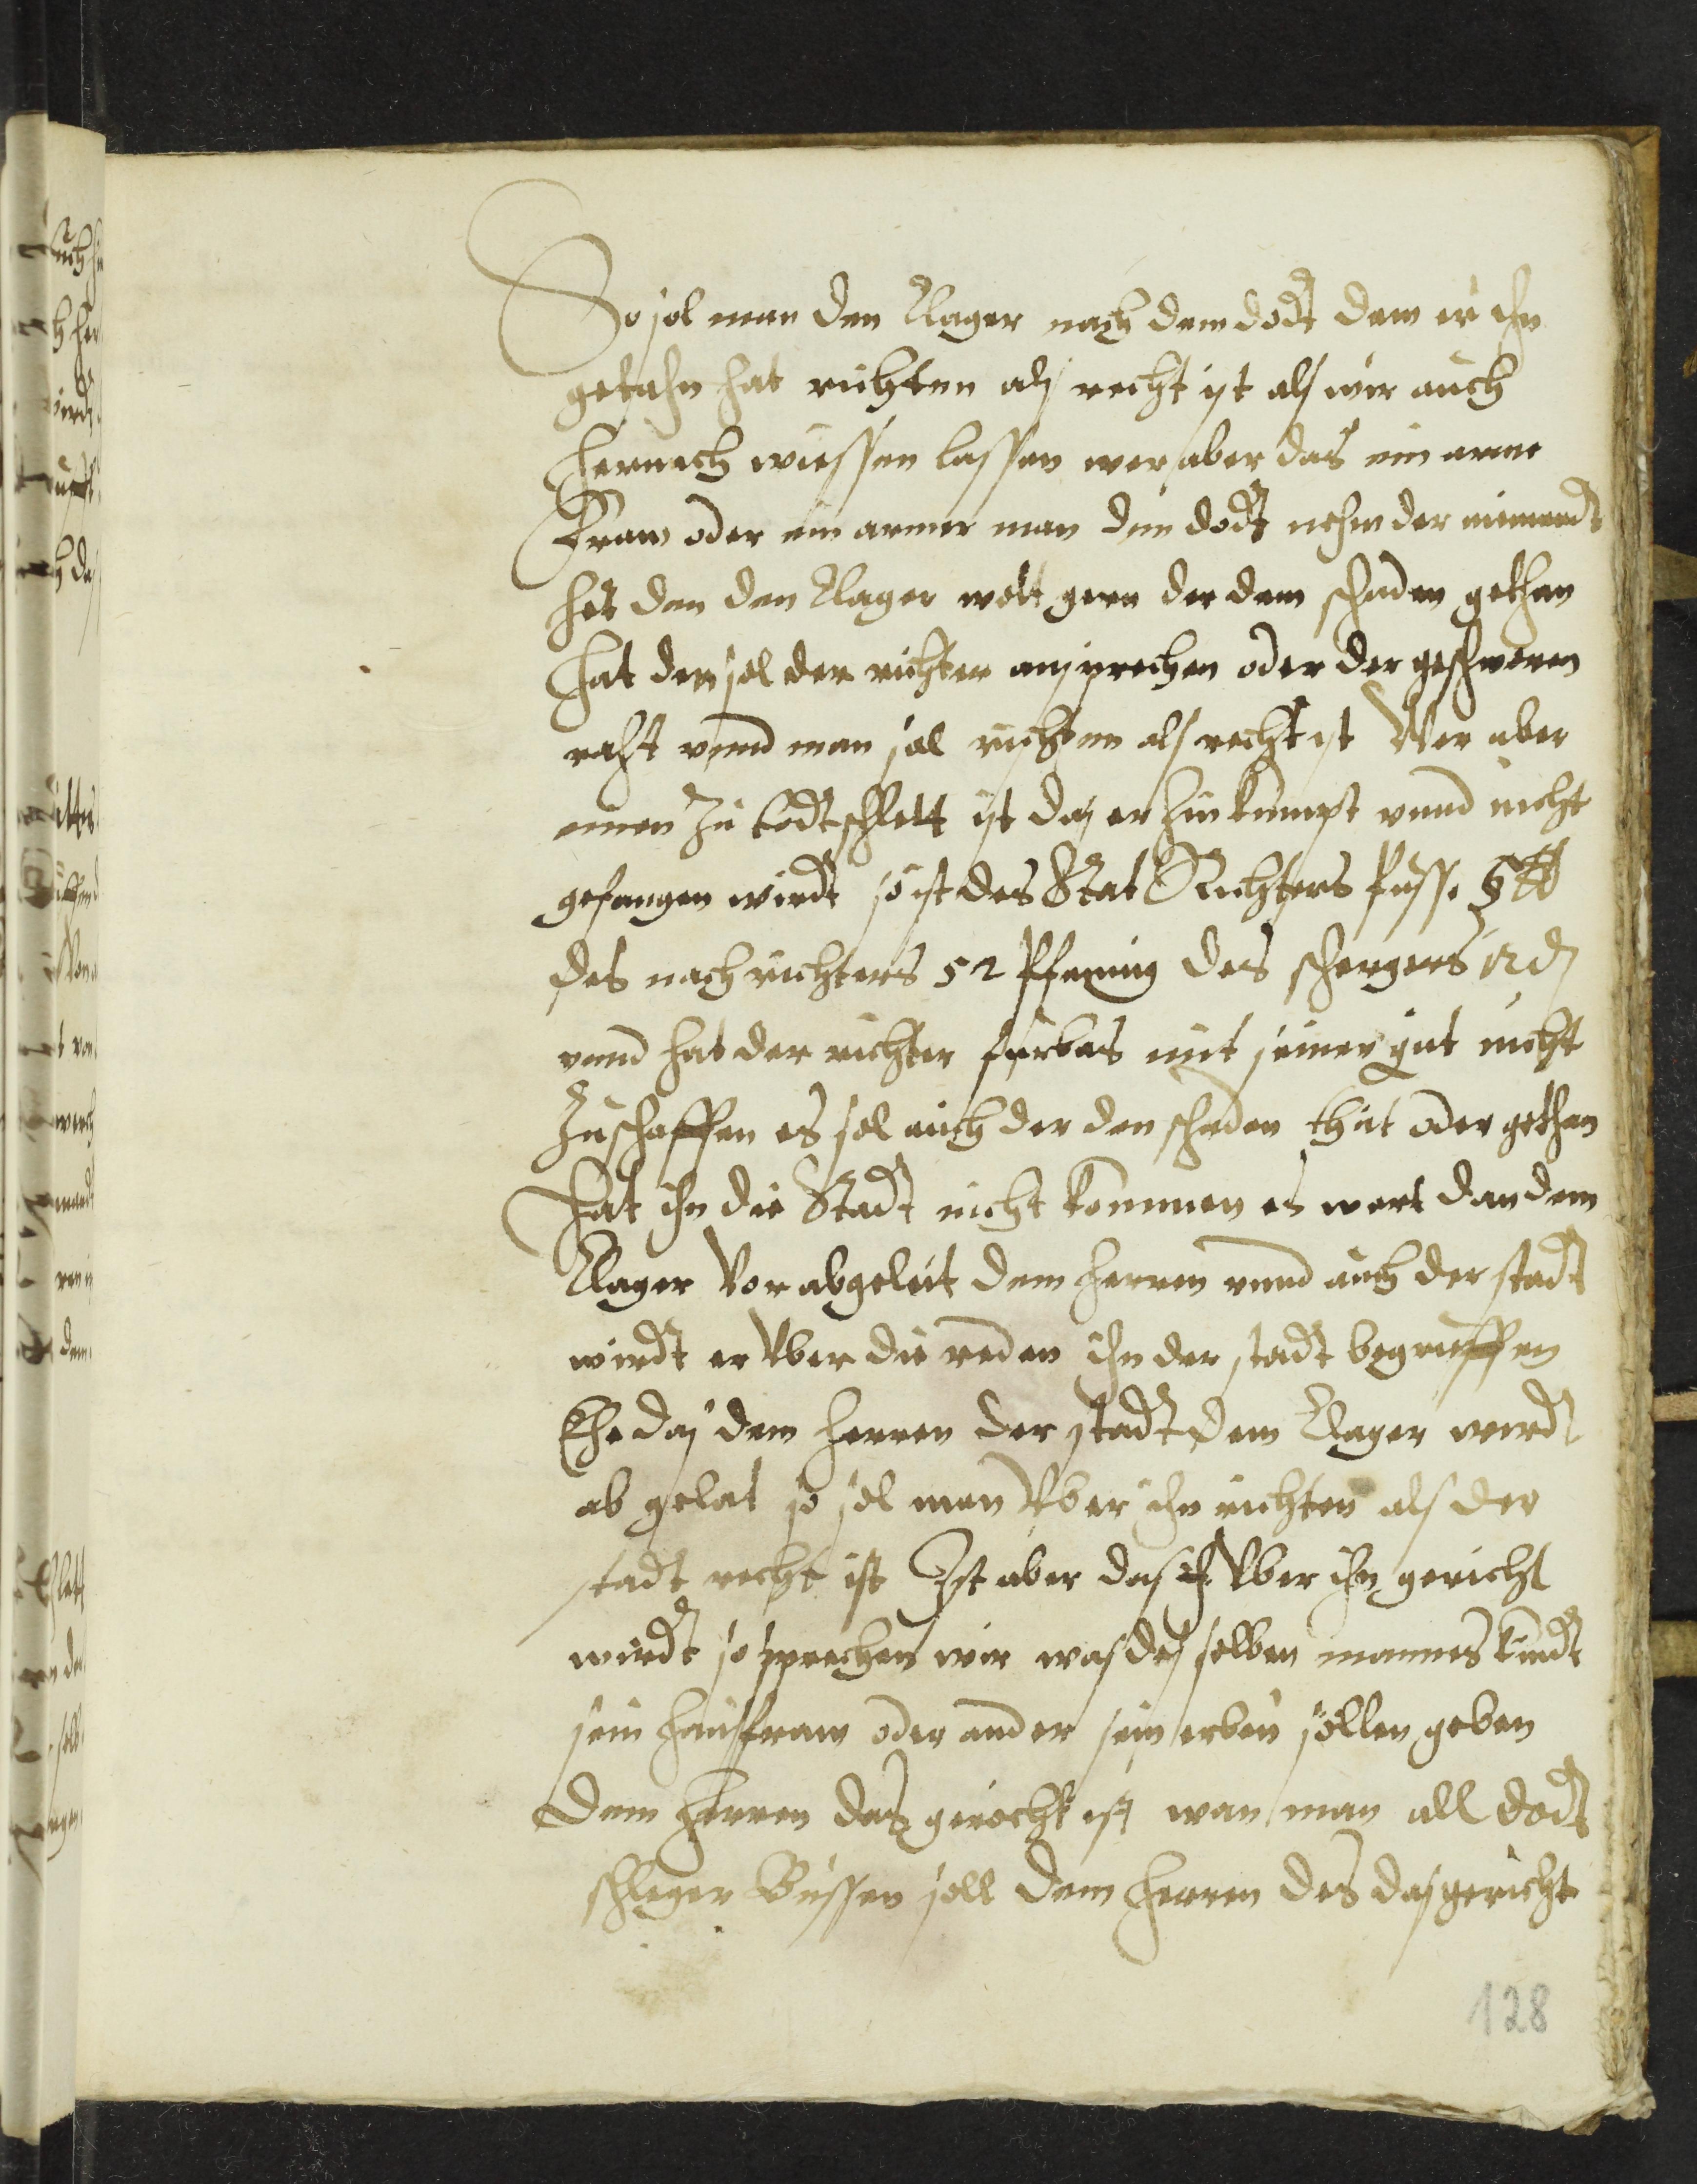 So sol man den Clager nach dem dodt dem er ihn
gethan hat richten als recht ist als wir auch
hernach wiessen lassen wer aber das ein arme
Fraw oder ein armer man den dodt nehm der niemandt
het den den Clager wolt gern der dem schaden gethan
hat den sol der richter ansprechen oder der geschworen
raht vnnd man sol richten als recht ist Wer aber
einen zu todt schlett ist das er hin kumpt vnnd nicht
gefangen wirdt so ist des Stat Richters busse 5 ℔
des nachrichters 52 Pfening des schergens 12 d
vnnd hat der richter furbas mit seiner gut nicht
zuschaffen es sol auch der den schaden thut oder gethan
hat ihn die Stadt nicht kommen es wert dan dem
Clager Vor abgeleit dem herren vnnd auch der stadt
wirdt er Vber die reden ihn der stadt begriffen
Ehe das dem herren der stadt dem Clager wirdt
ab gelat so sol man Vber ihn richten als der
stadt recht ist Ist aber das Vber ihn gericht
wirdt so sprechen wir was des selben mannes kindt
sein hausfraw oder ander sein erben sollen geben
dem herren das gerecht ist wan man all dodt
schleger Bussen soll dem herren des das gericht
128